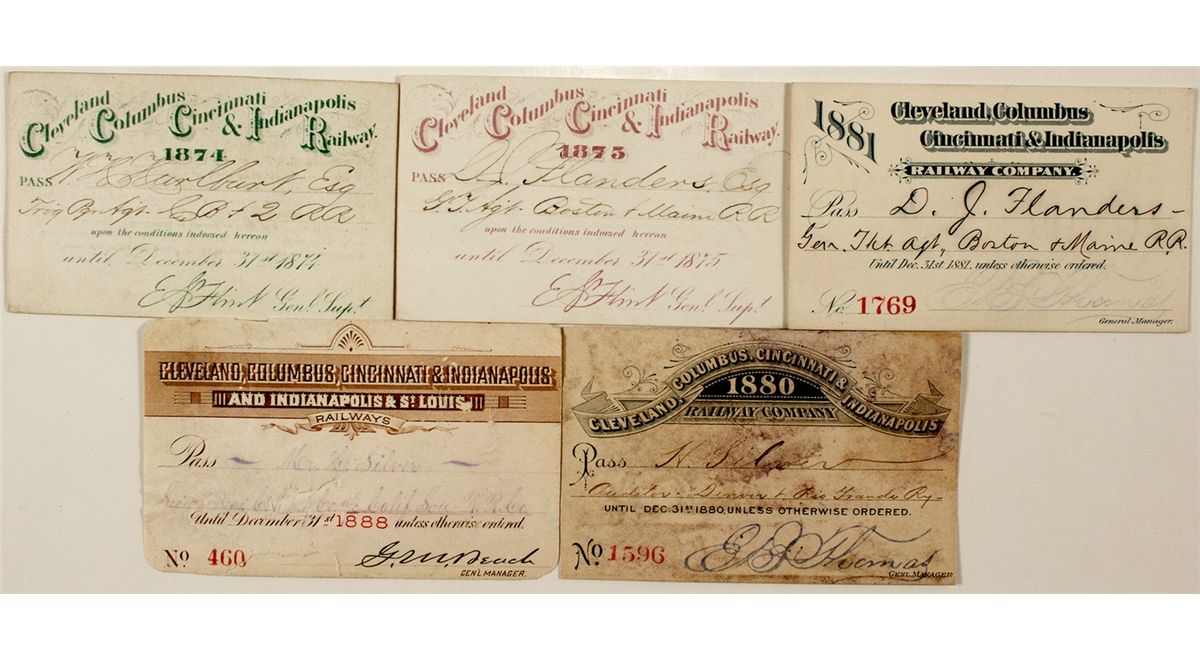 Cleveland Columbus Cincinnati & Indianapolis Railway.
1874
PASS W. Hurlburt, Esq
Agt. C B & Q RR
upon the conditions indorsed hereon
until December 31st 1874
E S Flint Genl. Supt.
Cleveland Columbus Cincinnati & Indianapolis Railway.
1875
PASS D. J. Flanders, Esq
G. T. Agt. Boston & Maine R R
upon the conditions indorsed hereon
until December 31st 1875.
E S Flint Genl. Supt.
1881
Cleveland, Columbus
Cincinnati & Indianapolis
RAILWAY COMPANY.
Pass D. J. Flanders
Gen. Tkt. Agt, Boston & Maine R.R.
Until Dec. 31st 1881, unless otherwise ordered.
No. 1769 E B Thomas
General Manager.
CLEVELAND, COLUMBUS, CINCINNATI & INDIANAPOLIS
AND INDIANAPOLIS & ST LOUIS
RAILWAYS
Pass Mr. H. Silver
Calif Sou R. R. Co
Until December 31st 1888 unless otherwise ordered.
No 460 G. M. Beach
GENL MANAGER.
CLEVELAND, COLUMBUS, CINCINNATI & INDIANAPOLIS
1880
RAILWAY COMPANY
Pass H. Silver
Auditor Denver & Rio Grande Ry
UNTIL DEC. 31ST 1880, UNLESS OTHERWISE ORDERED.
No 1596 E B Thomas
GENL MANAGER